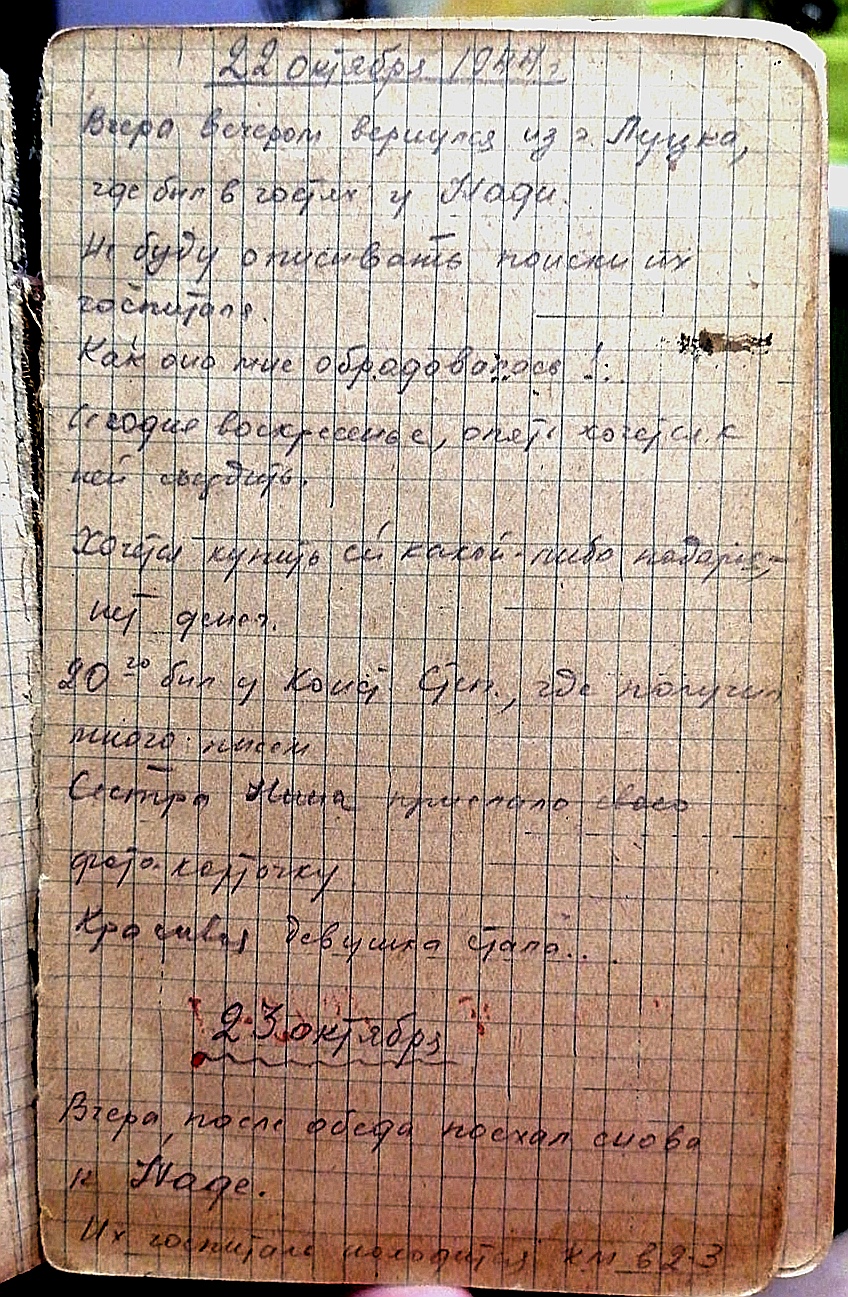 22 октября 1944 г.
Вчера вечером вернулся из г. Луцка,
где был в гостях у Нади.
Не буду описывать поиски их
госпиталя.
Как она мне обрадовалась!..
Сегодня воскресенье, опять хочется к
ней съездить.
Хочется купить ей какой-либо подарок, -
нет денег.
20го был у Конст. Степ., где получил
много писем
Сестра Нина прислала свою
фото-карточку.
Красивая девушка стала...
23 октября
Вчера, после обеда поехал снова
к Наде.
Их госпиталь находится км в 2-3